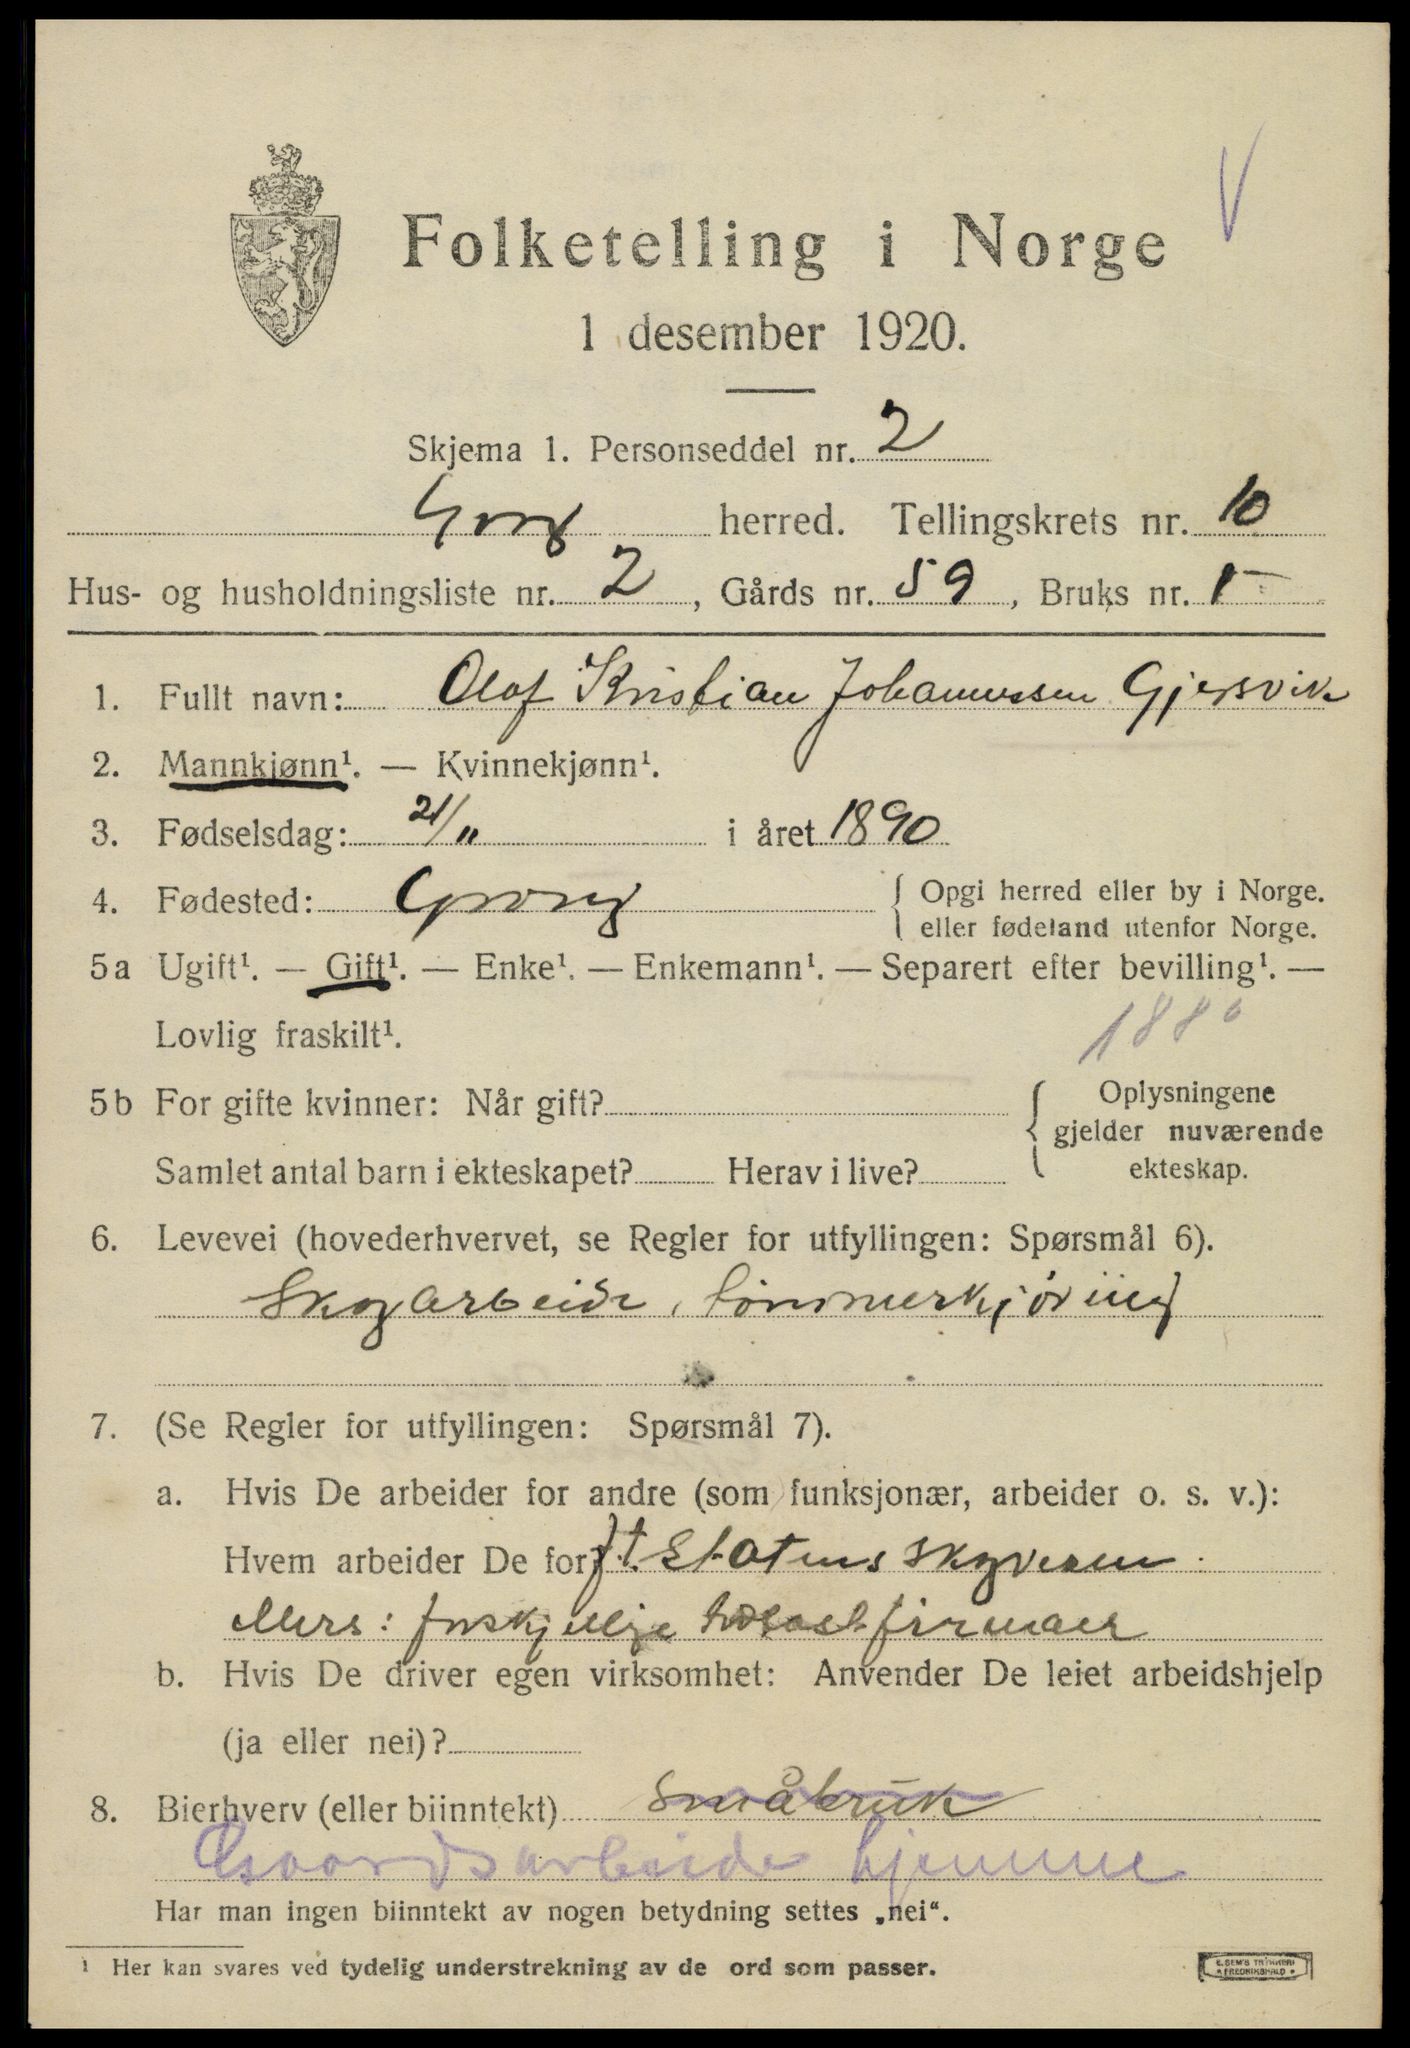 V
Folketelling i Norge
1 desember 1920.
Skjema 1. Personseddel nr. 2
Grong herred. Tellingskrets nr. 10
Hus- og husholdningsliste nr. 2, Gårds nr. 59, Bruks nr. 1
1. Fullt navn: Olaf Kristian Johannessen Gjersvik
2. Mannkjønn¹. — Kvinnekjønn¹.
3. Fødselsdag: 21/11 i året 1890
4. Fødested: Grong { Opgi herred eller by i Norge.
eller fødeland utenfor Norge.
5a Ugift¹. — Gift¹. — Enke¹. — Enkemann¹. — Separert efter bevilling¹. —
Lovlig fraskilt¹.
1880
5b For gifte kvinner: Når gift? { Oplysningene
gjelder nuværende
Samlet antal barn i ekteskapet? Herav i live? ekteskap.
6. Levevei (hovederhvervet, se Regler for utfyllingen: Spørsmål 6).
Skogarbeide, tømmerkjøring
7. (Se Regler for utfyllingen: Spørsmål 7).
a. Hvis De arbeider for andre (som funksjonær, arbeider o. s. v.):
Hvem arbeider De for? f.t. Statens skogvesen
Ellers: forskjellige firmaer
b. Hvis De driver egen virksomhet: Anvender De leiet arbeidshjelp
(ja eller nei)?
8. Bierhverv (eller biinntekt) Småbruk
Gaardsarbeide hjemme
Har man ingen biinntekt av nogen betydning settes „nei“.
¹ Her kan svares ved tydelig understrekning av de ord som passer.
E. SEM'S TRYKKERI
FREDRIKSHALD